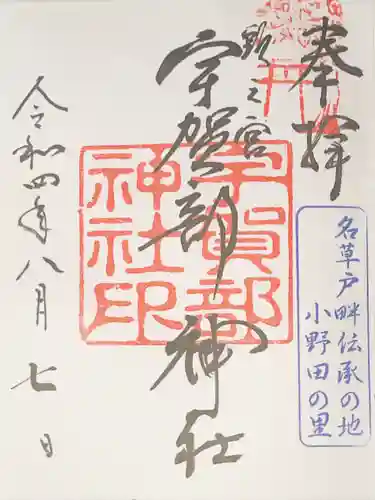 奉拝
頭之宮
宇賀部神社
令和四年八月七日
宇賀部
神社印
名草戸畔伝承の地
小野田の里